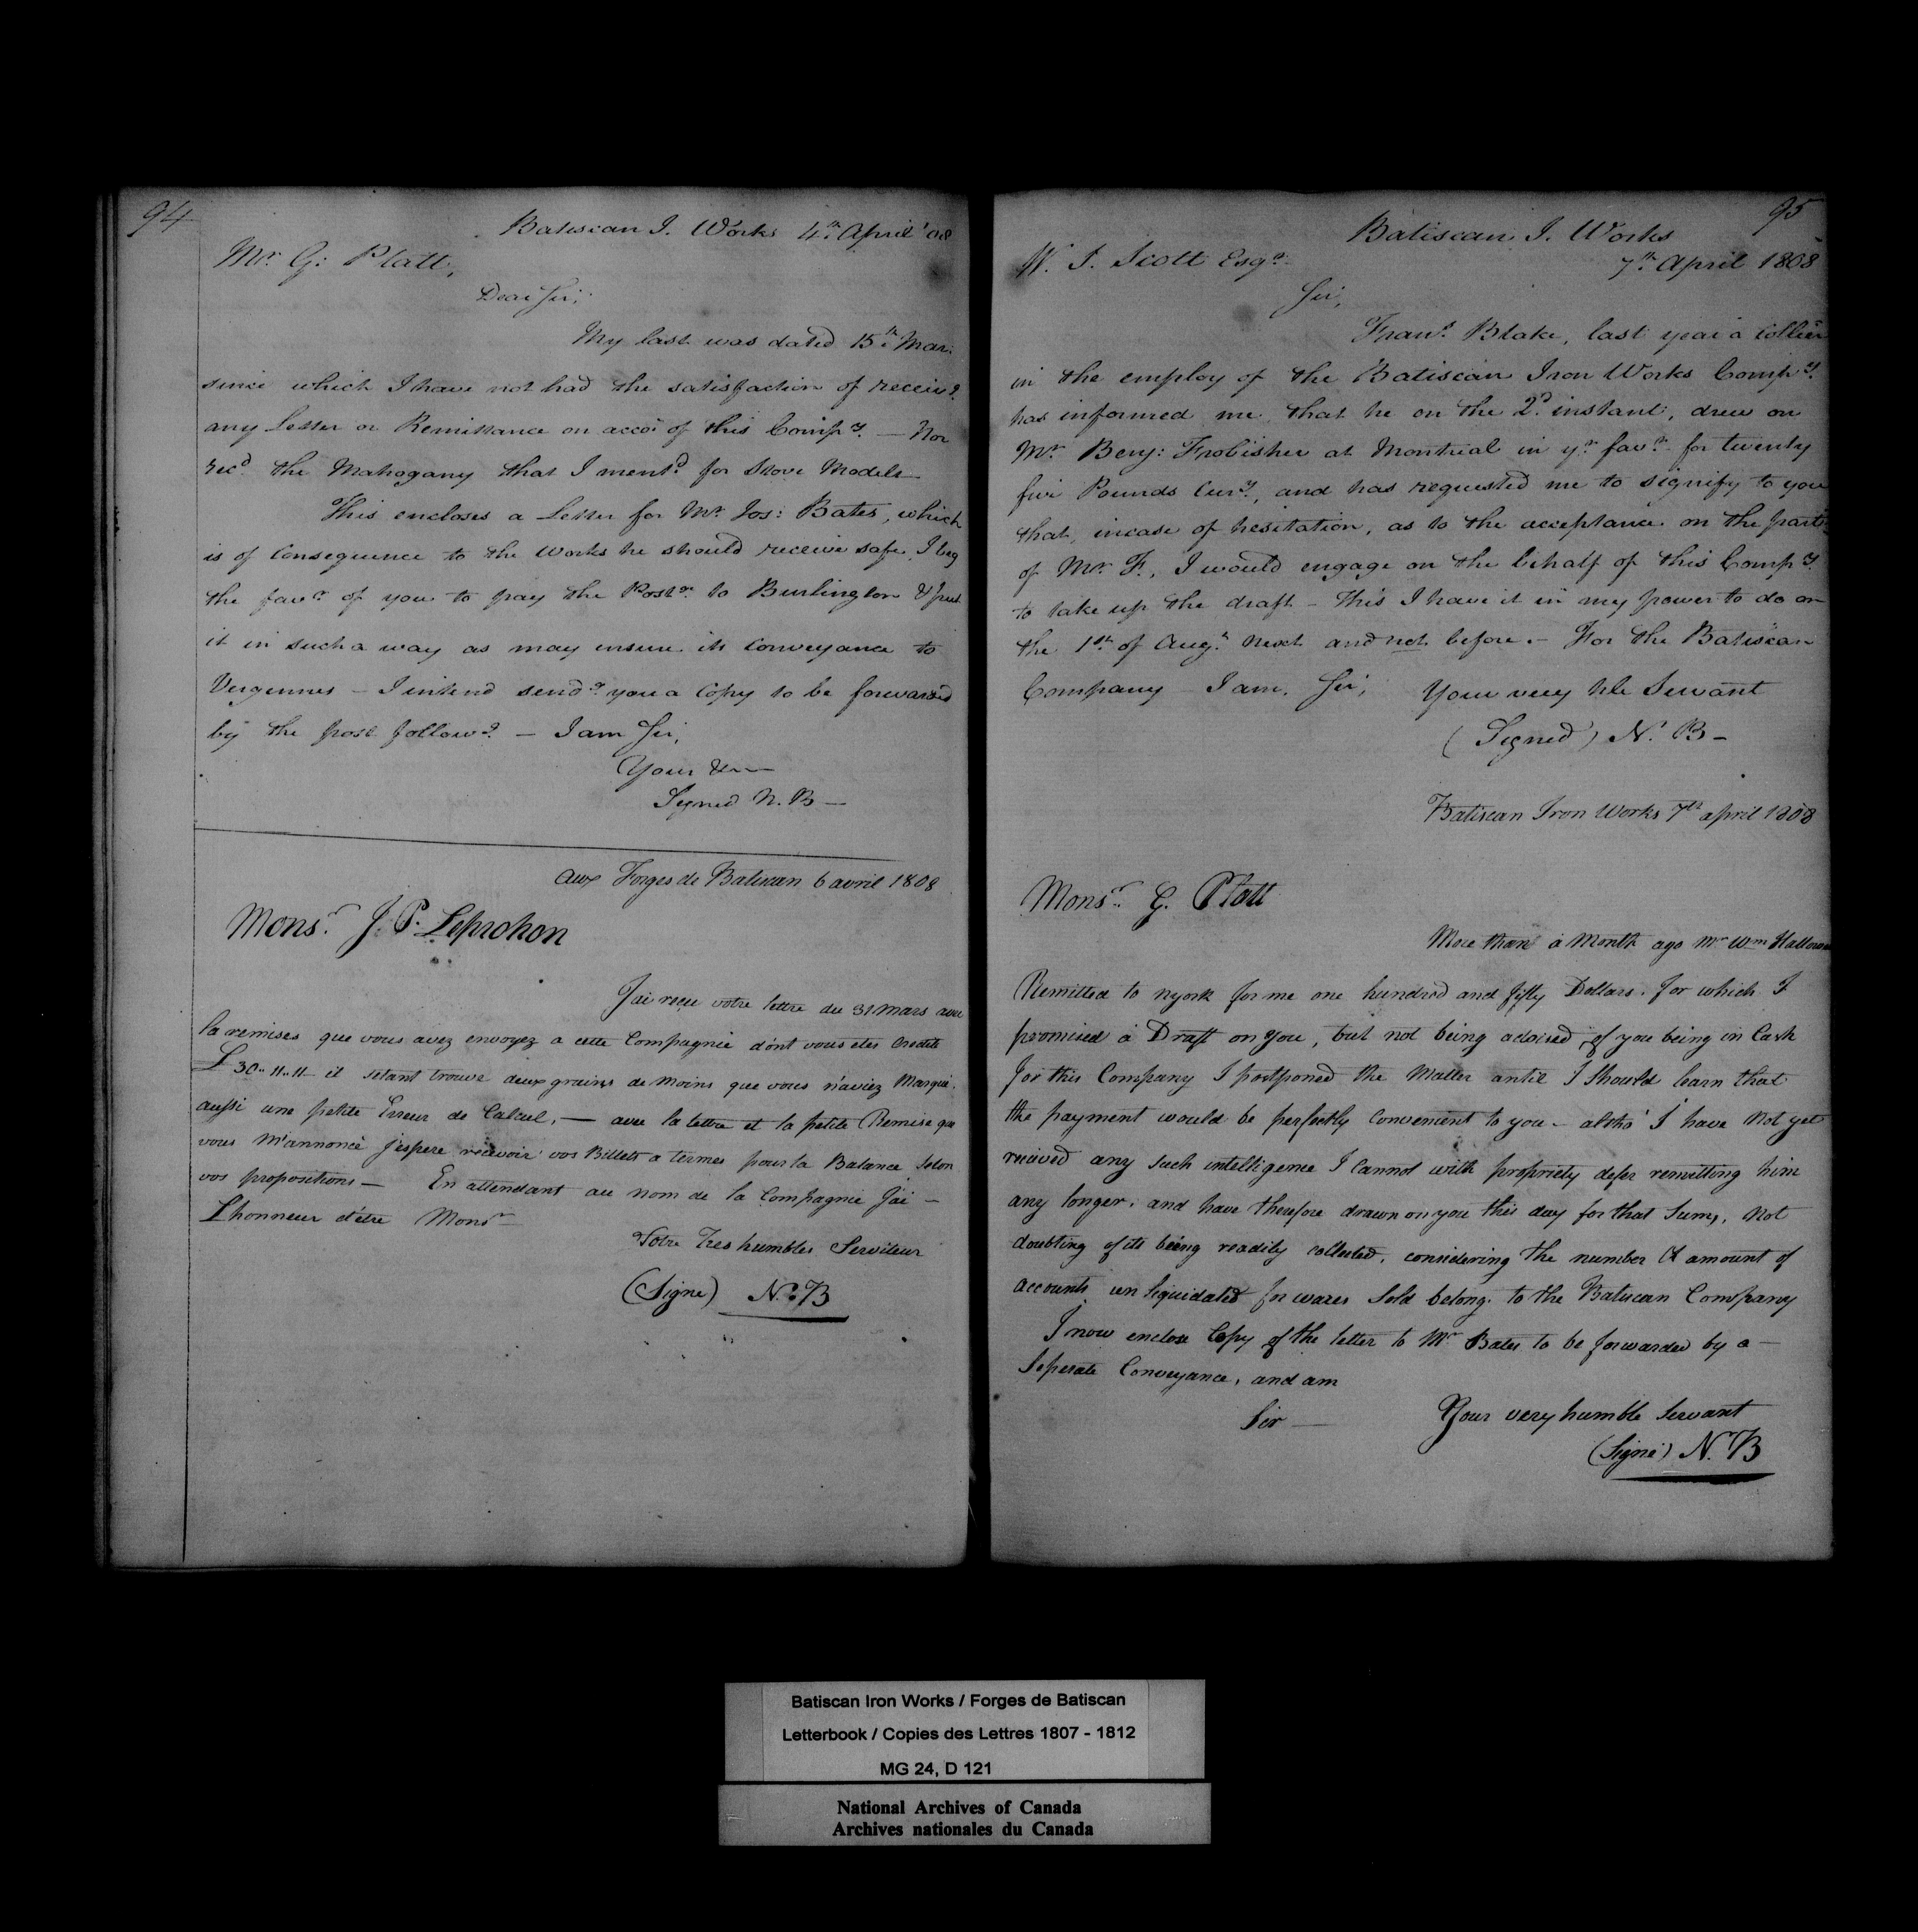 94
Batiscan I. Works 4th April '08
Mr. G: Platt,
Dear Sir,
My last was dated 15th Mar:
since which I have not had the satisfaction of receiv.g
any Letter or Remittance on acco.t of this Comp.y — Nor
rec.d the Mahogany that I ment.d for Stove Models
This encloses a Letter for Mr. Jos: Bates, which
is of consequence to the Works he should receive safe. I beg
the fav.r of you to pay the Post.e to Burlington & put
it in such a way as may insure its conveyance to
Vergennes — I intend send.g you a Copy to be forwarded
by the post follow.g — I am Sir,
Your &c—
Signed N. B—
Aux Forges de Batiscan 6 avril 1808
Mons.r J. P. Leprohon
J'ai reçu votre lettre du 31 Mars avec
la remises que vous avez envoyez a cette Compagnie dont vous etes Credité
£ 30..11..11 il setant trouvé deux grains de moins que vous n'aviez Marqué.
aussi une petite Erreur de Calcul, — avec la lettre et la petite Remise que
vous m'annoncé j'espere recevoir vos Billets a termes pour la Balance selon
vos propositions — En attendant au nom de la Compagnie J'ai —
L'honneur d'être Monsr
Votre Tres humbles Serviteur
(Signe) N. B
95
Batiscan I. Works
7th April 1808
W. I. Scott Esq.r
Sir,
Fran.s Blake, last year a Collier
in the employ of the Batiscan Iron Works Comp.y
has informed me that he on the 2.d instant, drew on
Mr. Benj: Frobisher at Montreal in y.r fav.r for twenty
five Pounds Cur.y, and has requested me to signify to you
that, incase of hesitation, as to the acceptance on the part
of Mr. F., I would engage on the behalf of this Comp.y
to take up the draft — this I have it in my power to do on
the 1st of Aug.t next and not before. — For the Batiscan
Company I am, Sir, Your very hle Servant
(Signed) N. B—
Batiscan Iron Works 7th april 1808
Mons.r G. Platt
More than a Month ago Mr Wm Hallowell
Remitted to nyork for me one hundred and fifty Dollars. for which I
promised a Draft on you, but not being advised of you being in Cash
for this Company I postponed the Matter until I should learn that
the payment would be perfectly convenient to you — altho' I have not yet
recieved any such intelligence I cannot with propriety defer remitting him
any longer, and have therefore drawn on you this day for that Sum, not
doubting of its being readily collected, considering the number & amount of
accounts un liquidated for wares Sold belong. to the Batiscan Company
I now enclose Copy of the letter to Mr Bates to be forwarded by a —
Seperate Conveyance, and am
Sir — Your very humble Servant
(Signé) N. B
Batiscan Iron Works / Forges de Batiscan
Letterbook / Copies des Lettres 1807 - 1812
MG 24, D 121
National Archives of Canada
Archives nationales du Canada